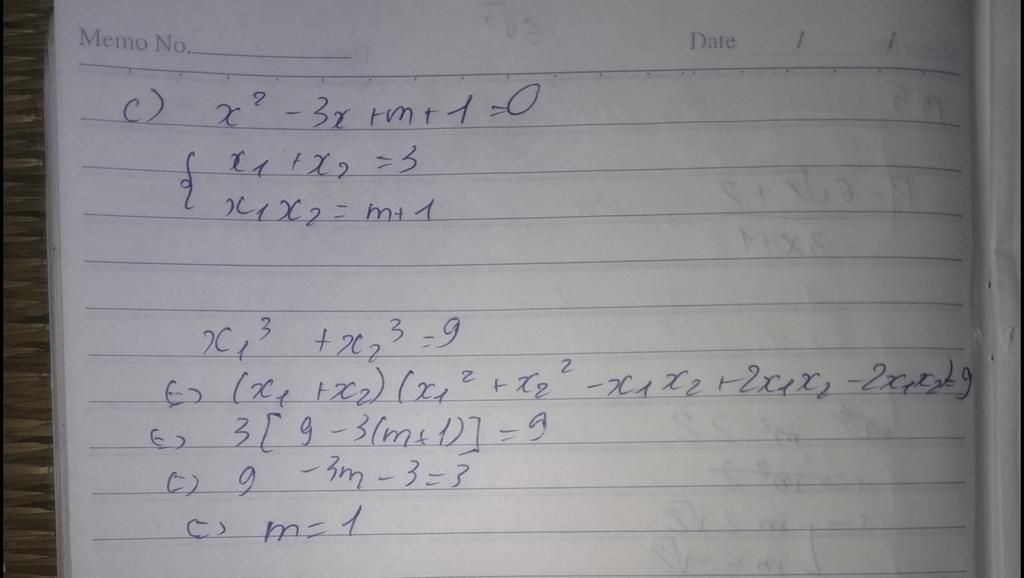 Memo No. Date / /
c) x² - 3x + m + 1 = 0
{ x₁ + x₂ = 3
x₁x₂ = m+1
x₁³ + x₂³ = 9
⇔ (x₁ + x₂)(x₁² + x₂² - x₁x₂ + 2x₁x₂ - 2x₁x₂) = 9
⇔ 3[9 - 3(m+1)] = 9
⇔ 9 - 3m - 3 = 3
⇔ m = 1